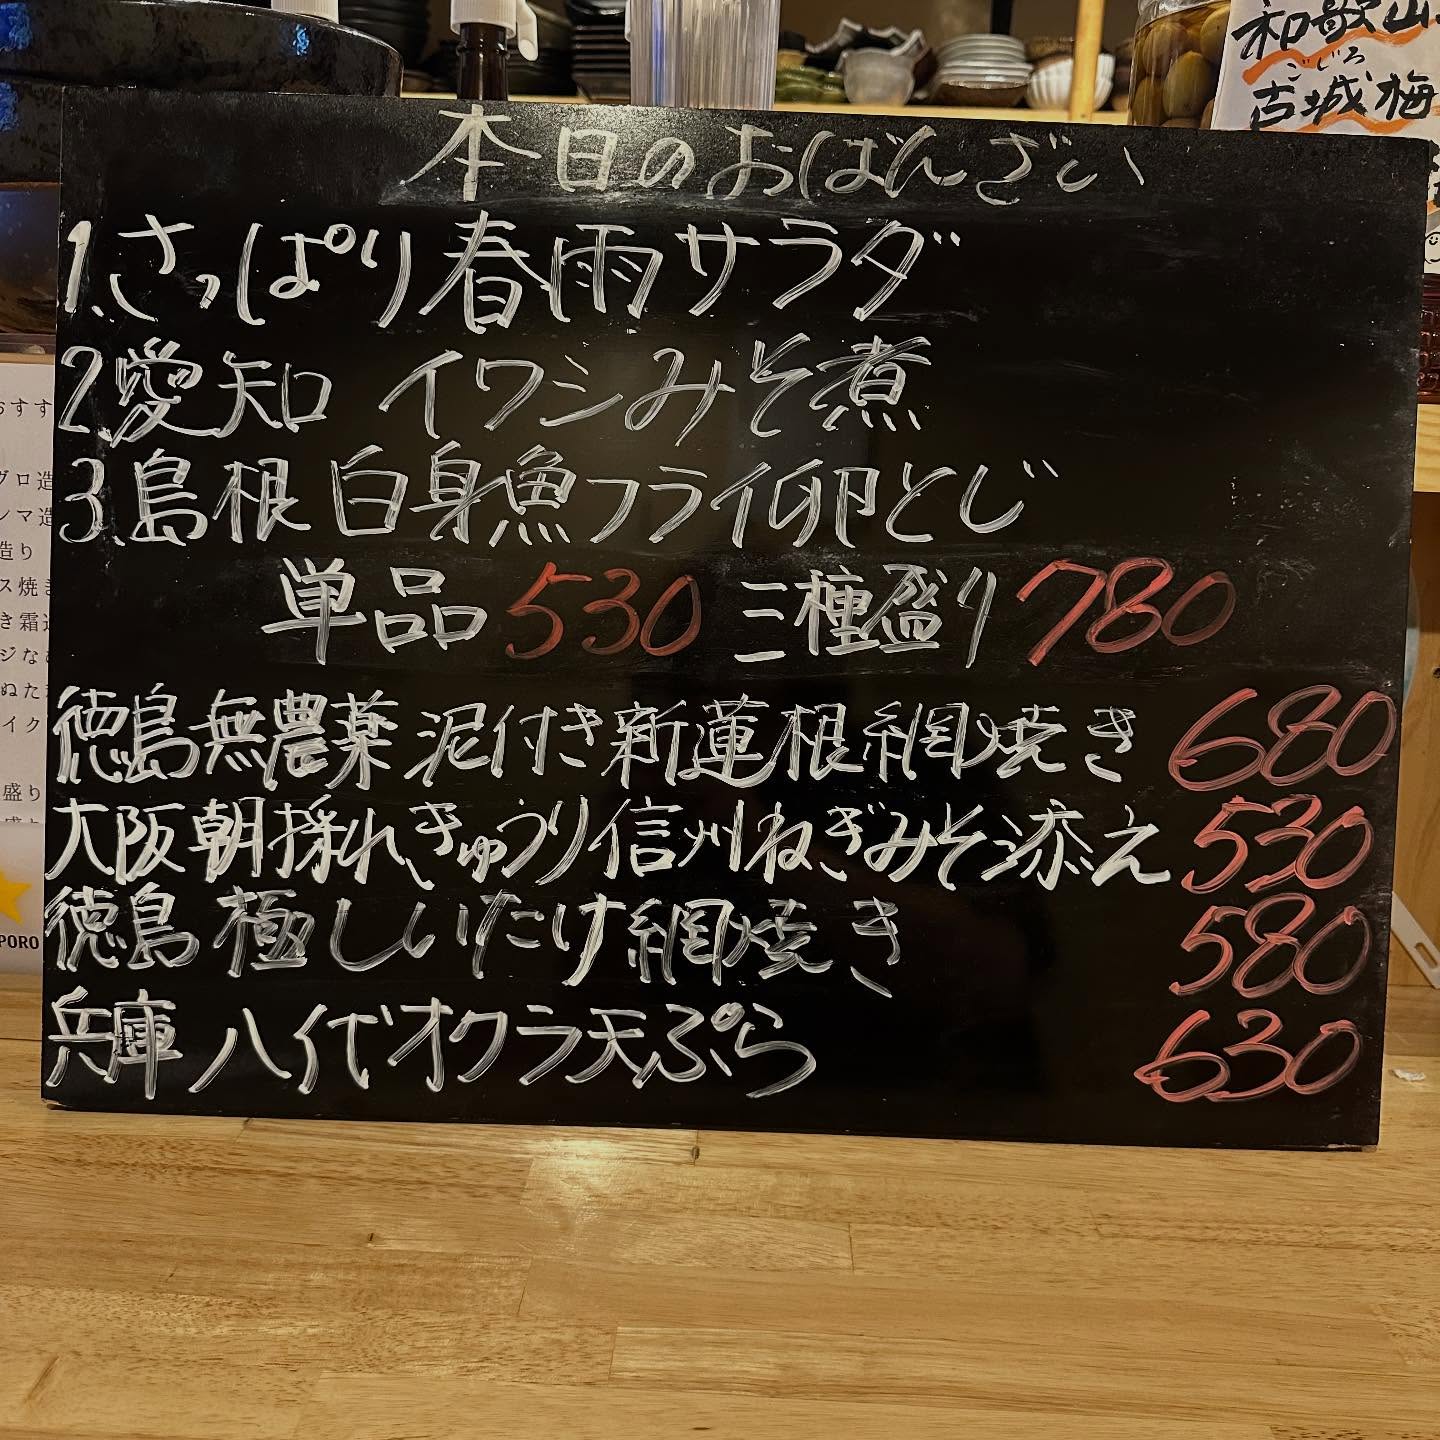 本日のおばんざい
1.さっぱり春雨サラダ
2.愛知 イワシみそ煮
3.島根 白身魚フライ卵とじ
単品530 三種盛り780
徳島無農薬 泥付き新蓮根網焼き 680
大阪朝採れきゅうり信州ねぎみそ添え 530
徳島 極しいたけ網焼き 580
兵庫 八代オクラ天ぷら 630
和歌山
ごじろ
古城梅
おすす
グロ造
ンマ造
造り
ス焼き
き霜造
ジなめ
ぬた
イク
盛り
PORO